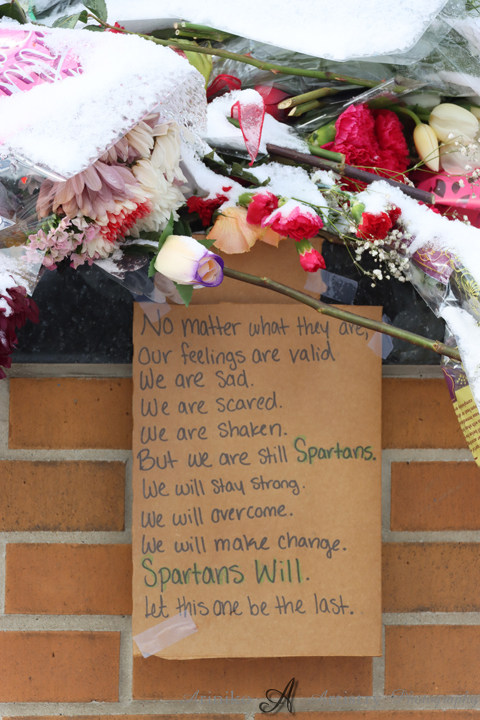 No matter what they are,
Our feelings are valid
We are sad.
We are scared.
We are shaken.
But we are still Spartans.
We will stay strong.
We will overcome.
We will make change.
Spartans Will.
Let this one be the last.
A